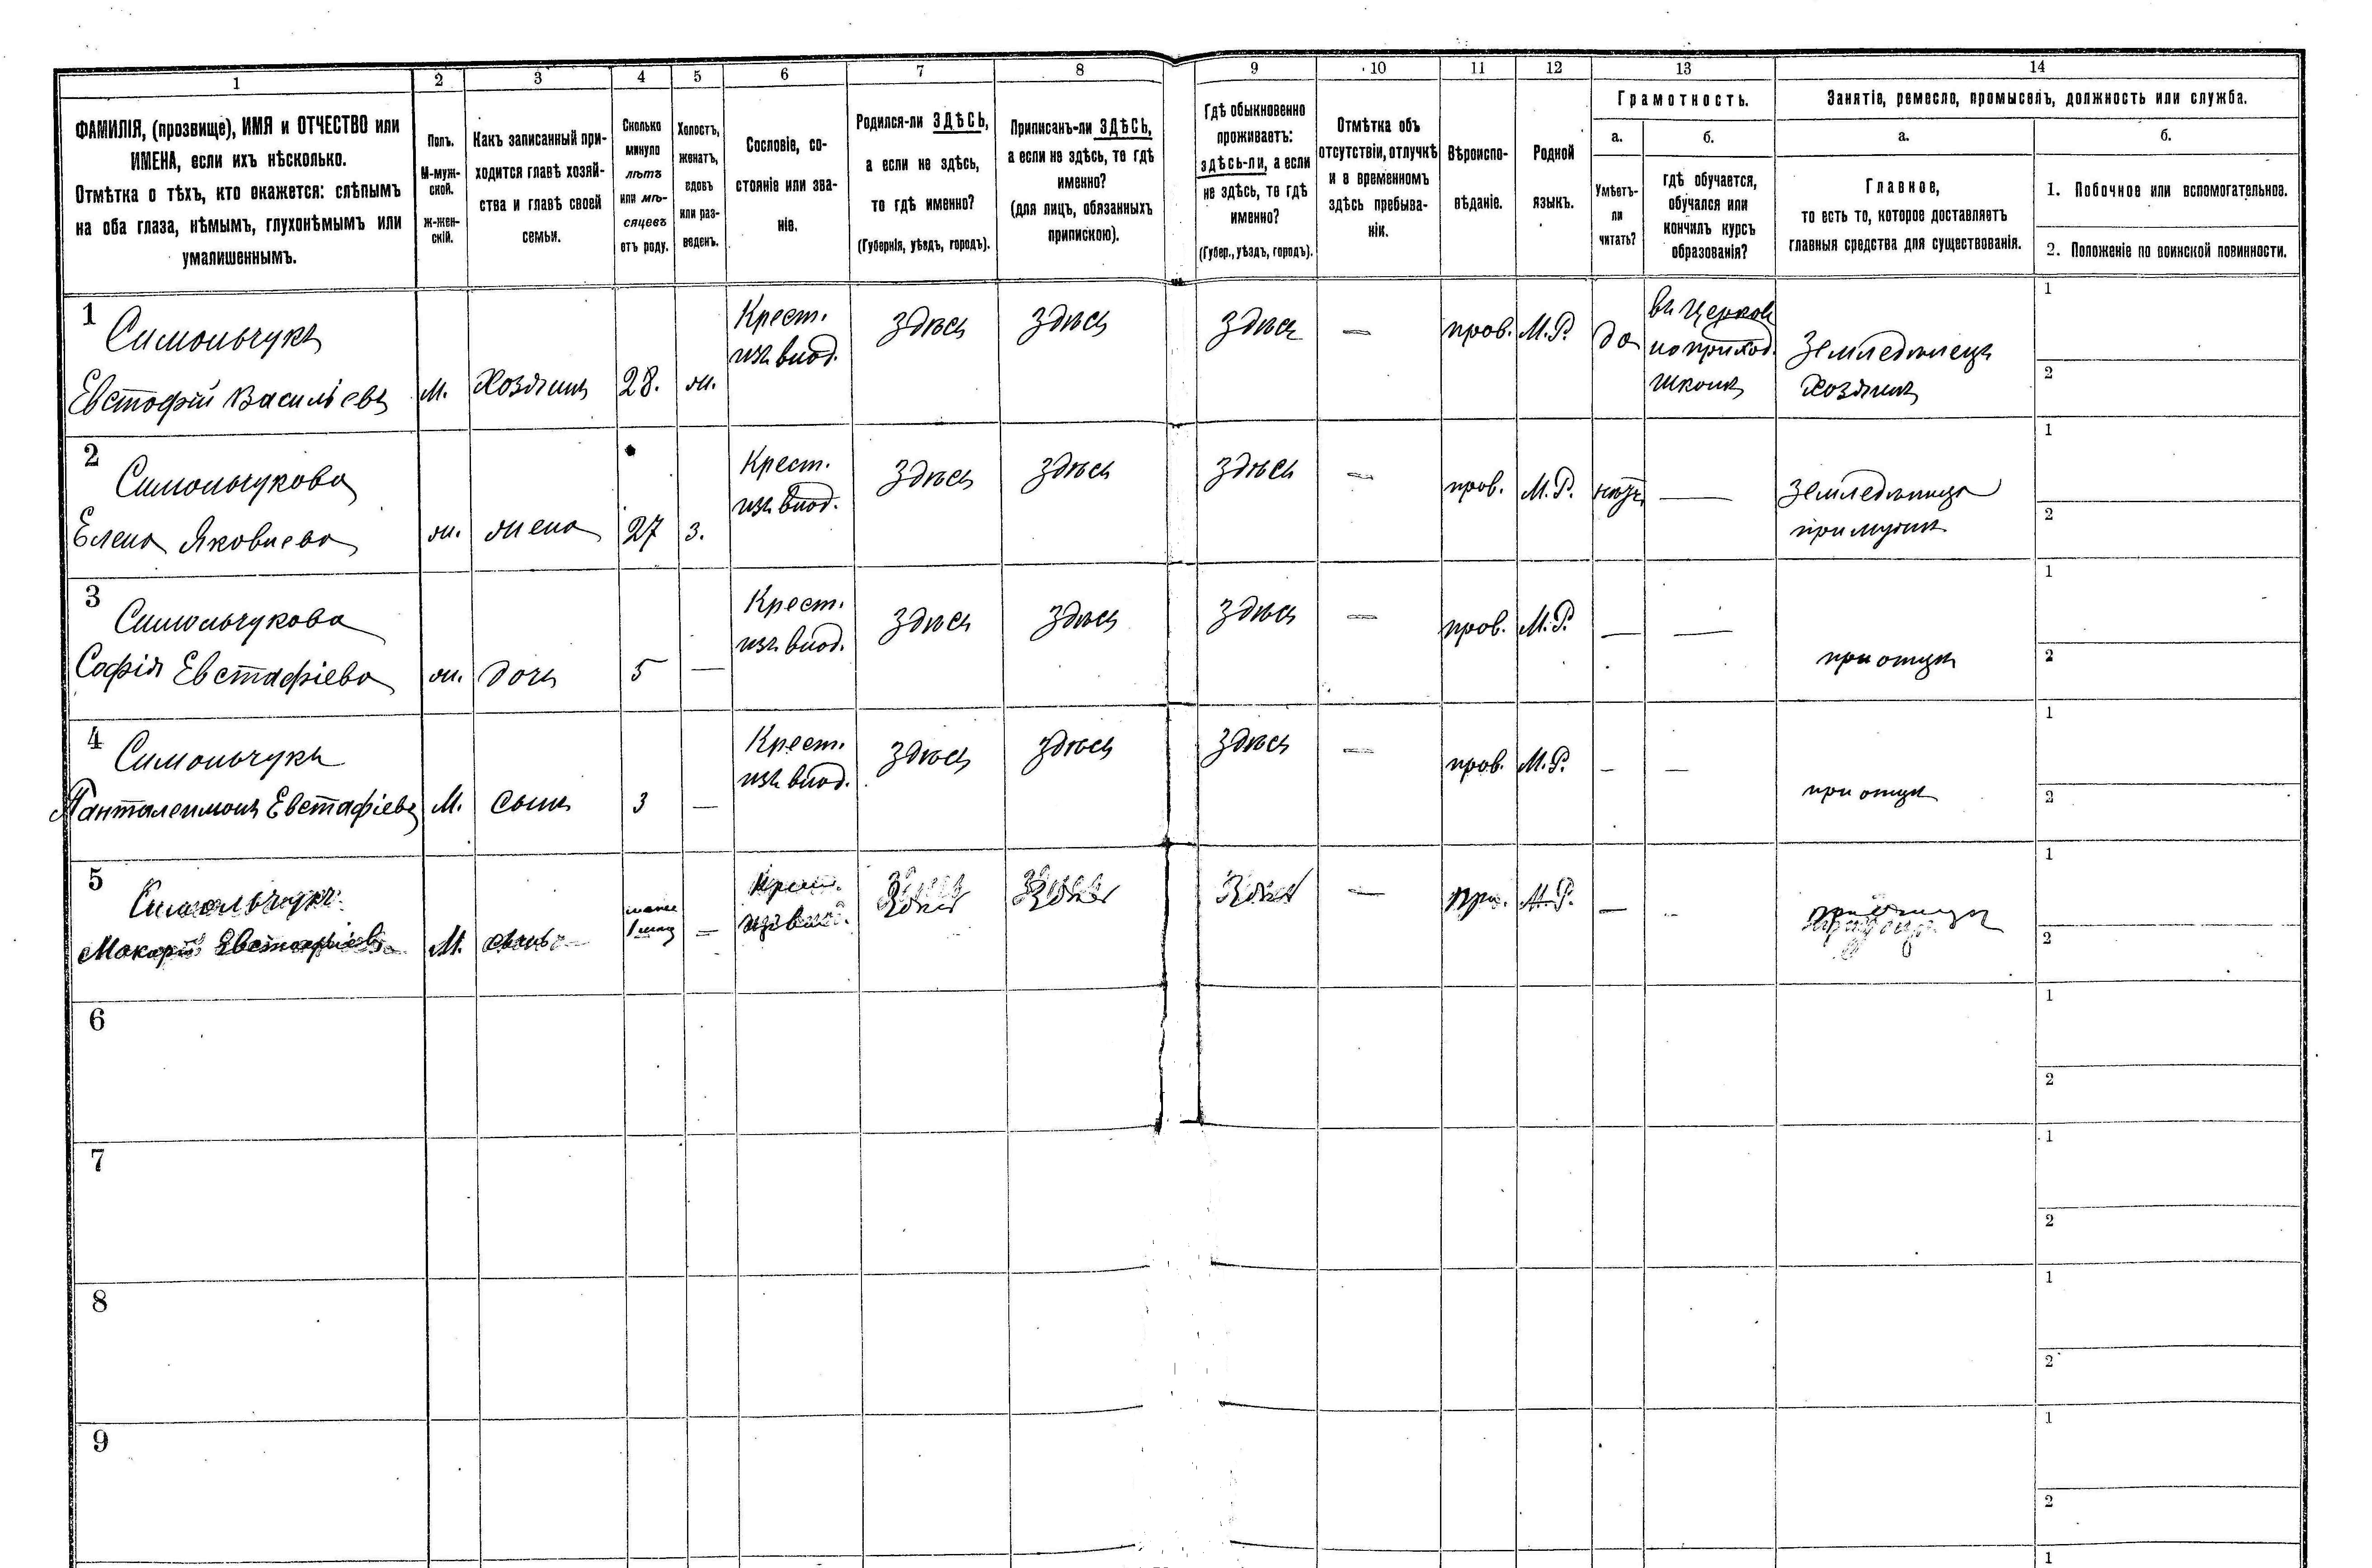 1 2 3 4 5 6 7 8 9 10 11 12 13 14
ФАМИЛІЯ, (прозвище), ИМЯ и ОТЧЕСТВО или
ИМЕНА, если ихъ нѣсколько.
Отмѣтка о тѣхъ, кто окажется: слѣпымъ
на оба глаза, нѣмымъ, глухонѣмымъ или
умалишеннымъ.
Полъ.
М-муж-
ской.
ж-жен-
скій.
Какъ записанный при-
ходится главѣ хозяй-
ства и главѣ своей
семьи.
Сколько
минуло
лѣтъ
или мѣ-
сяцевъ
отъ роду.
Холостъ,
женатъ,
вдовъ
или раз-
веденъ.
Сословіе, со-
стояніе или зва-
ніе.
Родился-ли ЗДѢСЬ,
а если не здѣсь,
то гдѣ именно?
(Губернія, уѣздъ, городъ).
Приписанъ-ли ЗДѢСЬ,
а если не здѣсь, то гдѣ
именно?
(для лицъ, обязанныхъ
припискою).
Гдѣ обыкновенно
проживаетъ:
здѣсь-ли, а если
не здѣсь, то гдѣ
именно?
(Губер., уѣздъ, городъ).
Отмѣтка объ
отсутствіи, отлучкѣ
и о временномъ
здѣсь пребыва-
ніи.
Вѣроиспо-
вѣданіе.
Родной
языкъ.
Грамотность.
а.
Умѣетъ-
ли
читать?
б.
гдѣ обучается,
обучался или
кончилъ курсъ
образованія?
Занятіе, ремесло, промыселъ, должность или служба.
а.
Главное,
то есть то, которое доставляетъ
главныя средства для существованія.
б.
1. Побочное или вспомогательное.
2. Положеніе по воинской повинности.
1
Симольчукъ
Евстафій Васильевъ
М.
Хозяинъ
28.
ж.
Крест.
изъ влад.
Здѣсь
Здѣсь
Здѣсь
—
прав.
М.Р.
да
въ Церков
но приход.
школѣ
Земледѣлецъ
Хозяинъ
1
2
2
Симольчукова
Елена Яковлева
ж.
жена
27
з.
Крест.
изъ влад.
Здѣсь
Здѣсь
Здѣсь
—
прав.
М.Р.
нѣтъ
—
Земледѣлица
при мужѣ
1
2
3
Симольчукова
Софія Евстафіева
ж.
дочь
5
—
Крест.
изъ влад.
Здѣсь
Здѣсь
Здѣсь
—
прав.
М.Р.
—
—
при отцѣ
1
2
4
Симольчукъ
Панталеимонъ Евстафіевъ
М.
сынъ
3
—
Крест.
изъ влад.
Здѣсь
Здѣсь
Здѣсь
—
прав.
М.Р.
—
—
при отцѣ
1
2
5
Симольчукъ
Макарій Евстафіевъ
М.
сынъ
менѣе
—
Крест.
изъ влад.
Здѣсь
Здѣсь
Здѣсь
—
пра.
М.Р.
—
при отцѣ
1
2
6
1
2
7
1
2
8
1
2
9
1
2
1